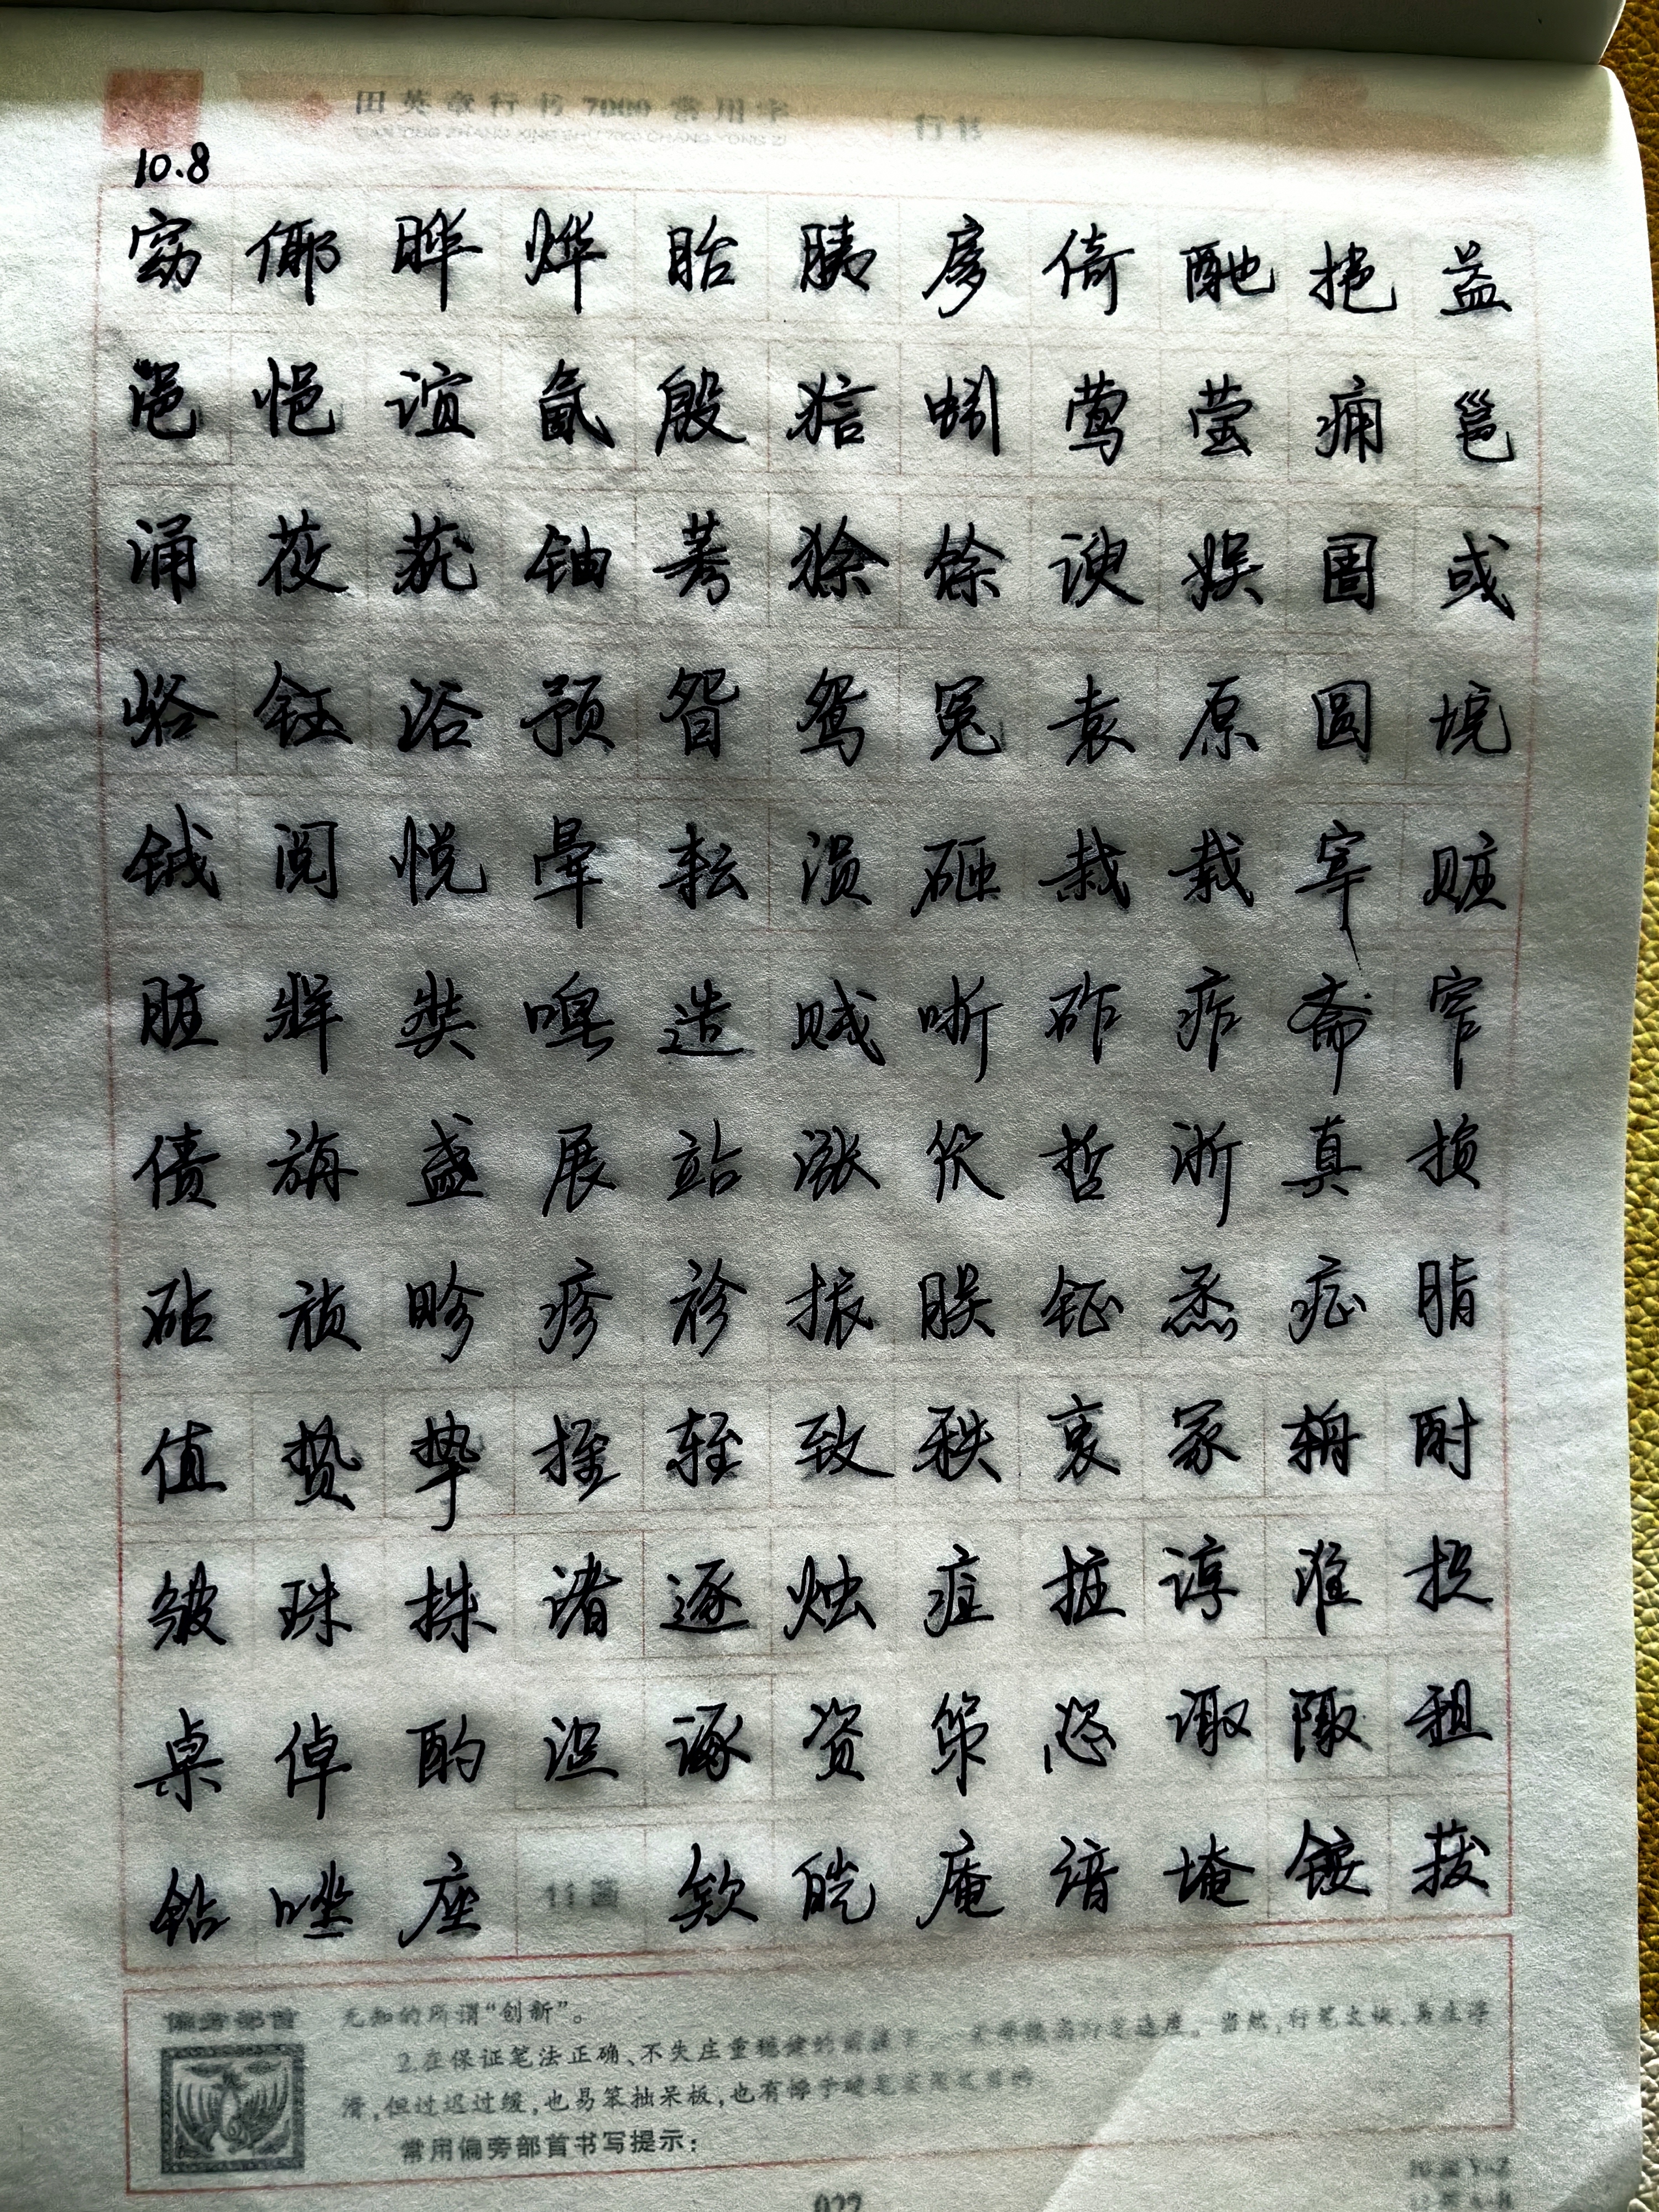 田英章行书7000常用字
TIAN YING ZHANG XING SHU 7000 CHANG YONG ZI
行书
10.8
窈 倻 晔 烨 眙 胰 扅 倚 酏 挹 益
浥 悒 谊 氤 殷 狺 蚓 莺 莹 痈 邕
涌 莜 莸 铀 莠 狳 馀 谀 娱 圄 彧
峪 钰 浴 预 眢 鸳 冤 袁 原 圆 垸
钺 阅 悦 晕 耘 涢 砸 栽 载 宰 赃
脏 牂 奘 唣 造 贼 唽 砟 痄 斋 窄
债 旃 盏 展 站 涨 伥 哲 浙 真 损
砧 祯 畛 疹 袗 振 朕 钲 烝 症 脂
值 贽 挚 挃 轾 致 秩 衷 冢 辀 酎
皱 珠 株 诸 逐 烛 疰 桩 谆 准 捉
桌 倬 酌 浞 诼 资 笫 恣 诹 陬 租
钻 唑 座 11画 欸 皑 庵 谙 埯 铵 菝
偏旁部首
无知的所谓“创新”。
2.在保证笔法正确、不失庄重稳健的前提下 速度。当然,行笔太快,易生浮
滑,但过迟过缓,也易笨拙呆板,也有悖于
常用偏旁部首书写提示:
10画 Y-Z
022